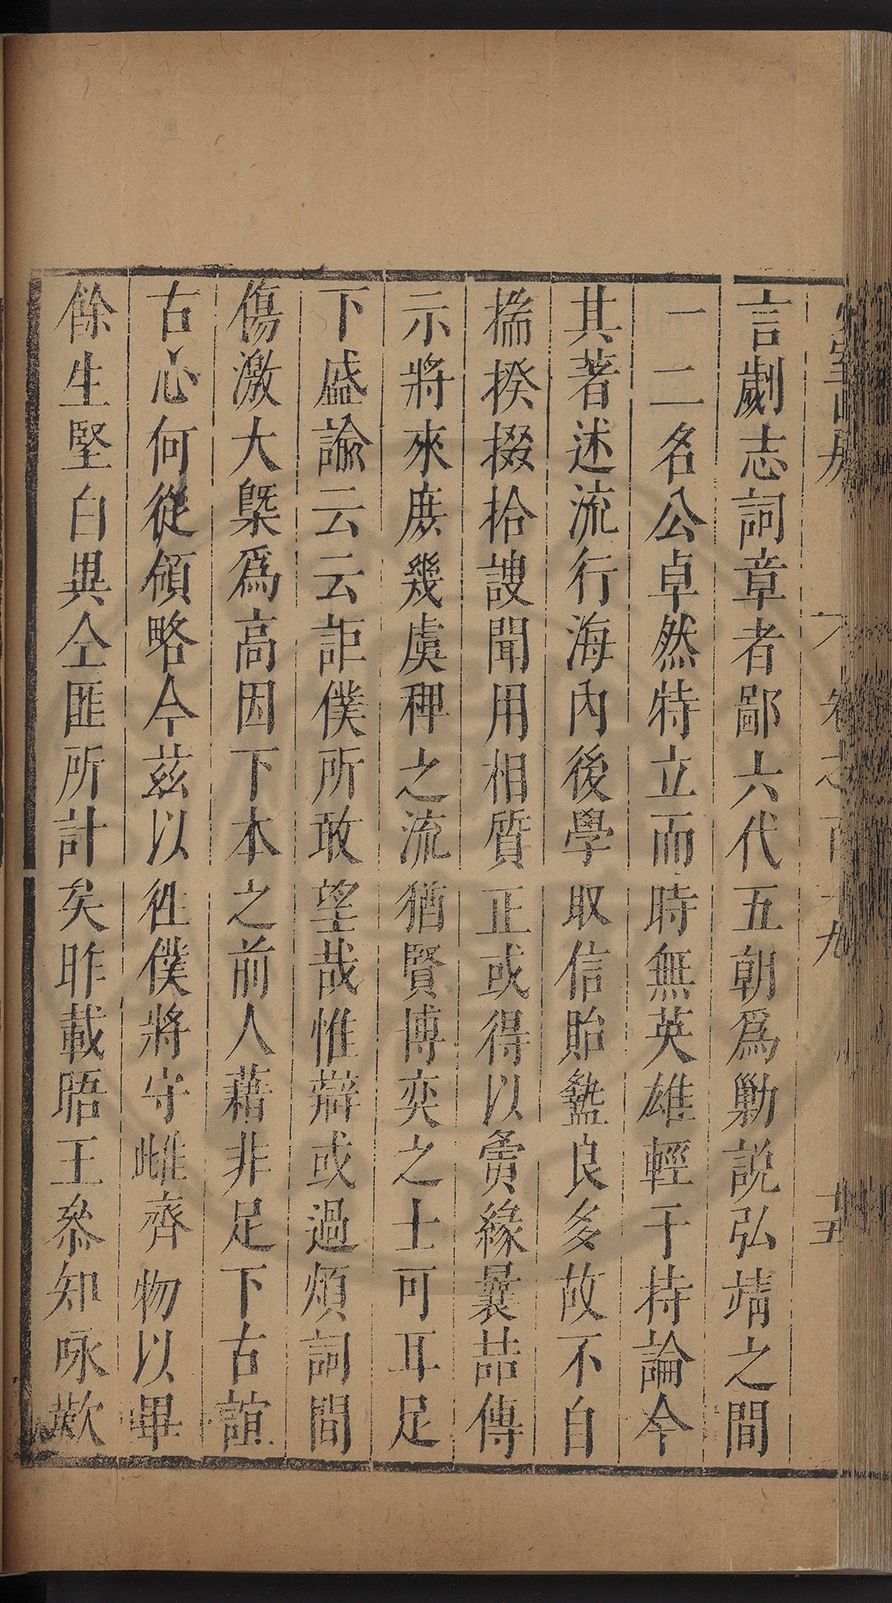 卷之百十九
十五
言劌志詞章者鄙六代五朝爲勦說弘靖之間
一二名公卓然特立而時無英雄輕于持論今
其著述流行海內後學取信貽盭良多故不自
揣揆掇拾謏聞用相質正或得以夤緣曩喆傳
示將來庶幾虞稗之流猶賢博奕之士可耳足
下盛諭云云詎僕所敢望哉惟辯或過煩詞間
傷激大槩爲高因下本之前人藉非足下古誼
古心何從領略今兹以徃僕將守雌齊物以畢
餘生堅白異仝匪所計矣昨載晤王叅知咏歎